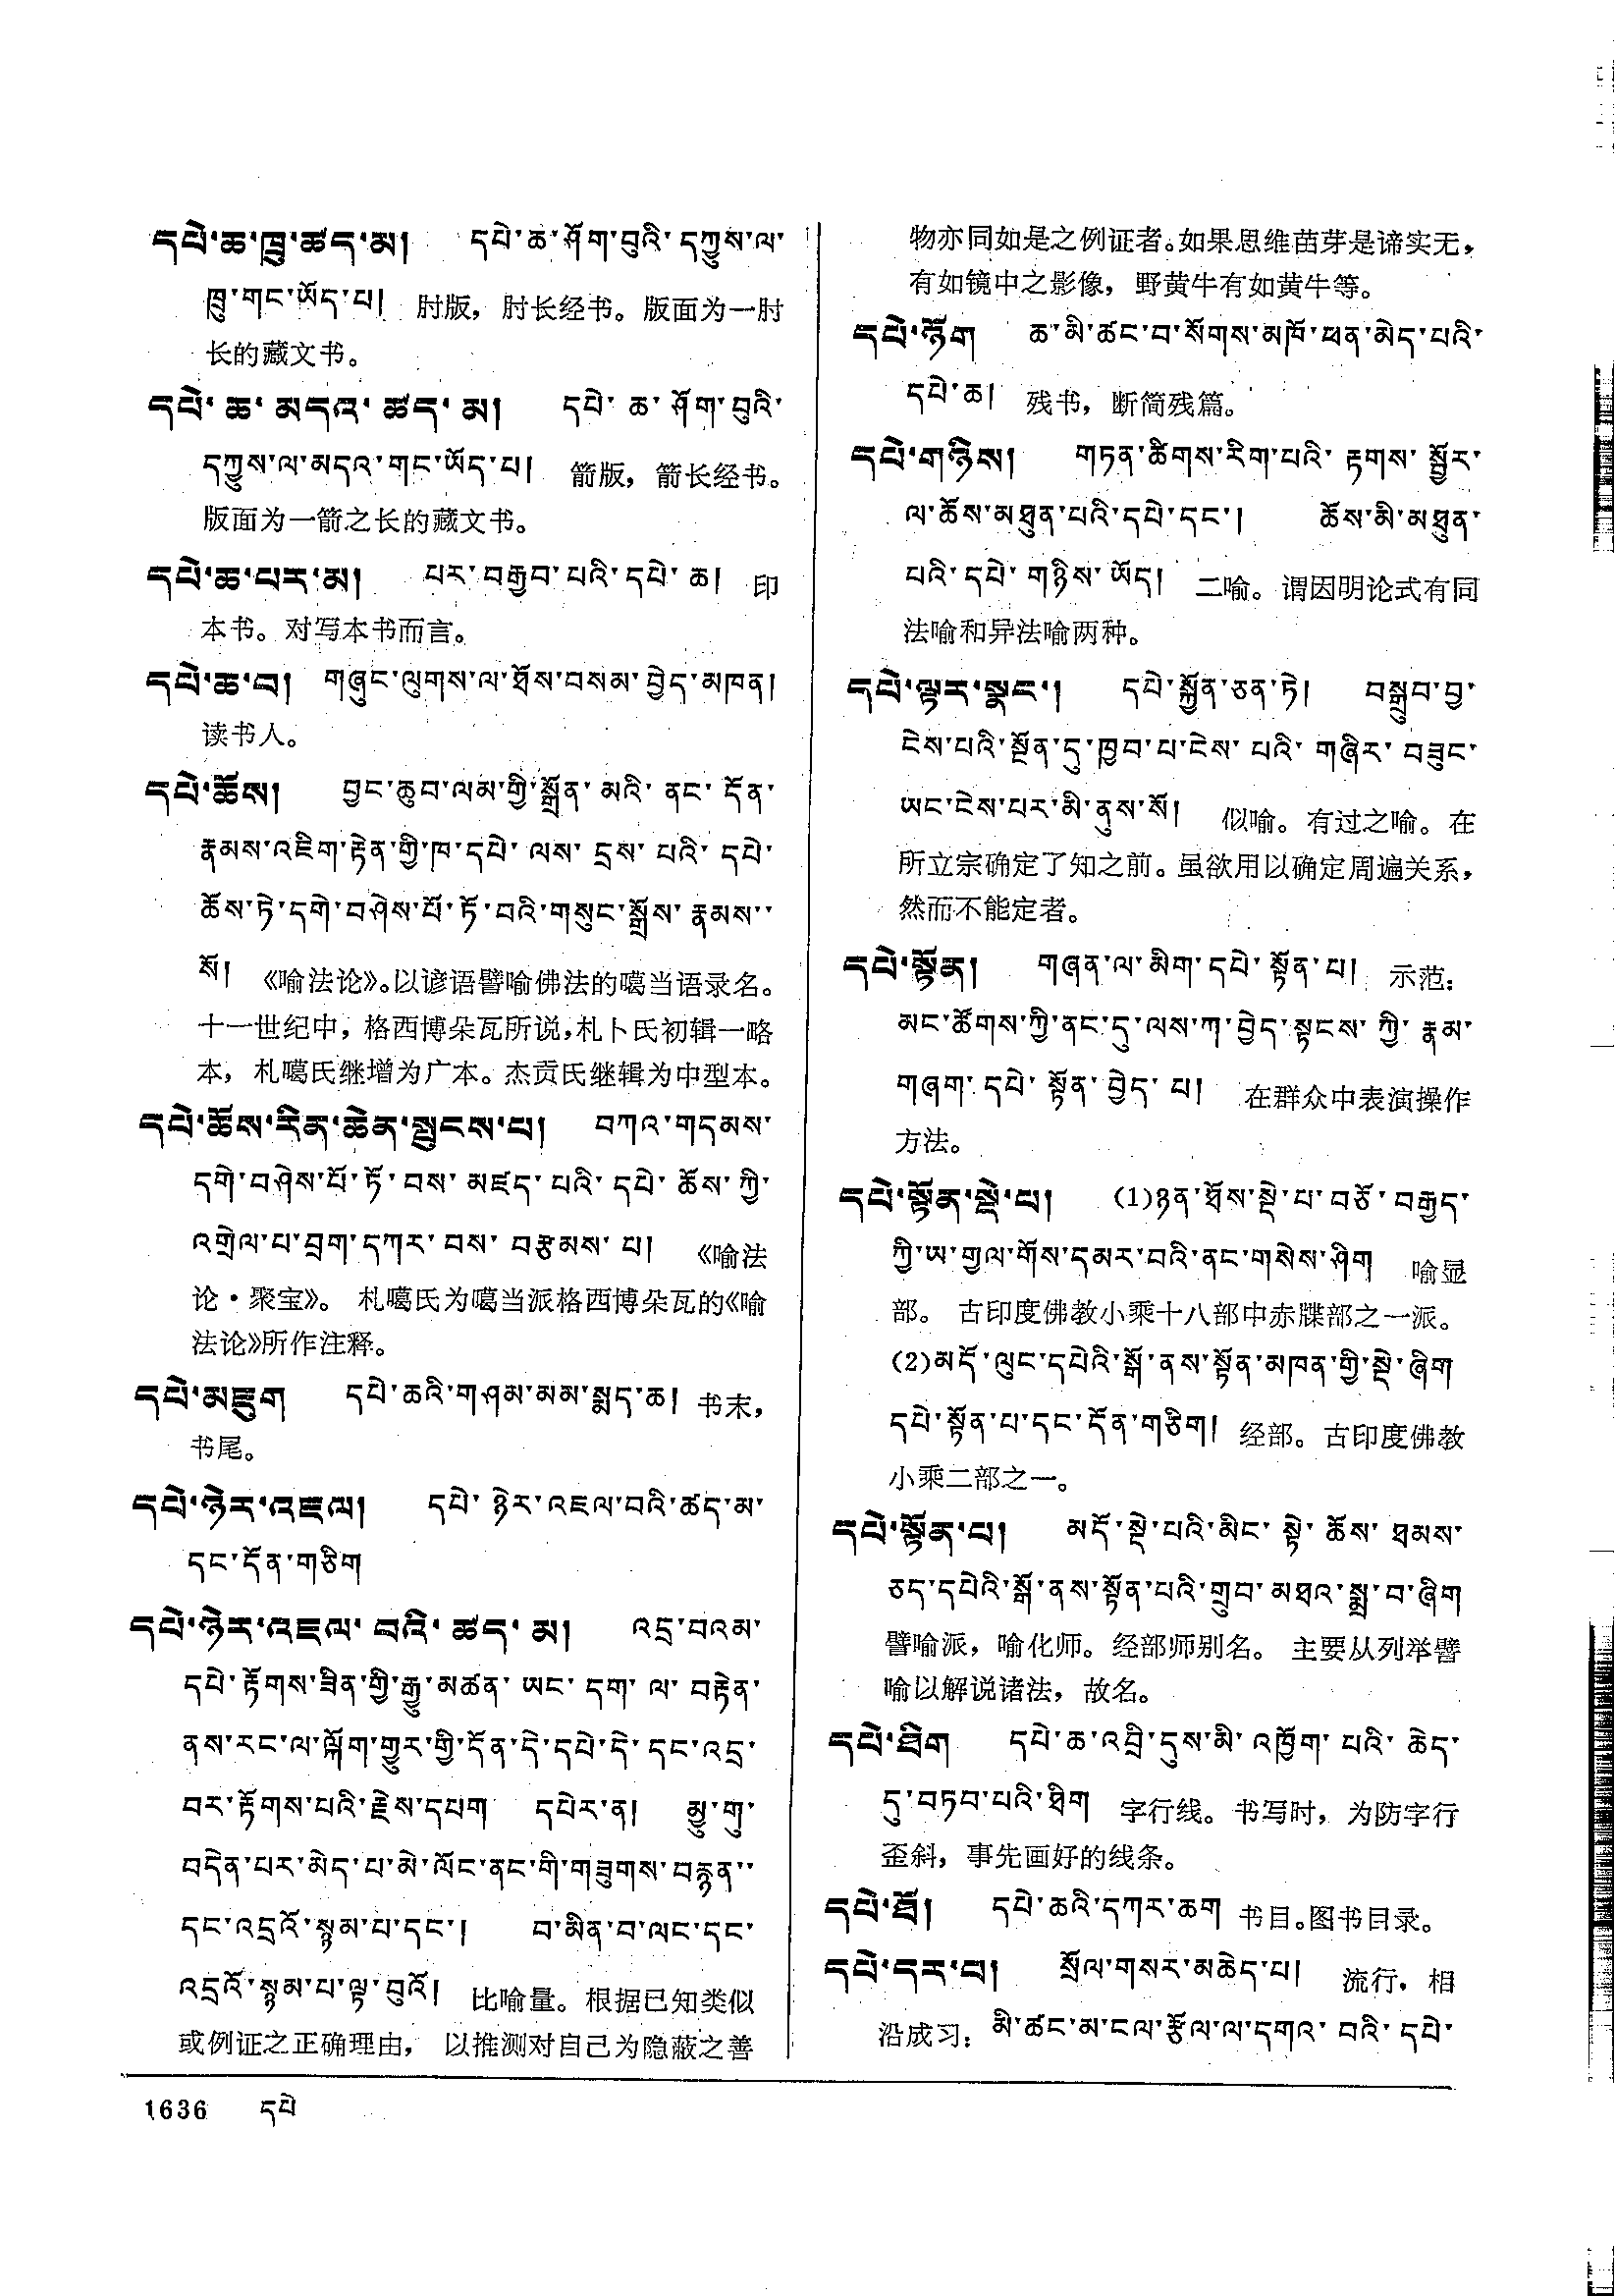 དཔེ་ཆ་ཁྲུ་ཚད་མ། དཔེ་ཆ་ཤོག་བུའི་དཀྱུས་ལ་
ཁྲུ་གང་ཡོད་པ། 肘版，肘长经书。版面为一肘
长的藏文书。
དཔེ་ཆ་མདའ་ཚད་མ། དཔེ་ཆ་ཤོག་བུའི་
དཀྱུས་ལ་མདའ་གང་ཡོད་པ། 箭版，箭长经书。
版面为一箭之长的藏文书。
དཔེ་ཆ་པར་མ། པར་བརྒྱབ་པའི་དཔེ་ཆ། 印
本书。对写本书而言。
དཔེ་ཆ་བ། གཞུང་ལུགས་ལ་ཐོས་བསམ་བྱེད་མཁན།
读书人。
དཔེ་ཆོས། བྱང་ཆུབ་ལམ་གྱི་སྒྲོན་མའི་ནང་དོན་
རྣམས་འཇིག་རྟེན་གྱི་ཁ་དཔེ་ལས་དྲས་པའི་དཔེ་
ཆོས་ཏེ་དགེ་བཤེས་པོ་ཏོ་བའི་གསུང་སྒྲོས་རྣམས་་
སོ། 《喻法论》。以谚语譬喻佛法的噶当语录名。
十一世纪中，格西博朵瓦所说，札卜氏初辑一略
本，札噶氏继增为广本。杰贡氏继辑为中型本。
དཔེ་ཆོས་རིན་ཆེན་སྤུངས་པ། བཀའ་གདམས་
དགེ་བཤེས་པོ་ཏོ་བས་མཛད་པའི་དཔེ་ཆོས་ཀྱི་
འགྲེལ་པ་བྲག་དཀར་བས་བརྩམས་པ། 《喻法
论·聚宝》。 札噶氏为噶当派格西博朵瓦的《喻
法论》所作注释。
དཔེ་མཇུག དཔེ་ཆའི་གཤམ་མམ་སྨད་ཆ། 书末，
书尾。
དཔེ་ཉེར་འཇལ། དཔེ་ཉེར་འཇལ་བའི་ཚད་མ་
དང་དོན་གཅིག
དཔེ་ཉེར་འཇལ་བའི་ཚད་མ། འདྲ་བའམ་
དཔེ་རྟོགས་ཟིན་གྱི་རྒྱུ་མཚན་ཡང་དག་ལ་བརྟེན་
ནས་རང་ལ་ལྐོག་གྱུར་གྱི་དོན་དེ་དཔེ་དེ་དང་འདྲ་
བར་རྟོགས་པའི་རྗེས་དཔག དཔེར་ན། མྱུ་གུ་
བདེན་པར་མེད་པ་མེ་ལོང་ནང་གི་གཟུགས་བརྙན་་
དང་འདྲའོ་སྙམ་པ་དང་། བ་མིན་བ་ལང་དང་
འདྲའོ་སྙམ་པ་ལྟ་བུའོ། 比喻量。根据已知类似
或例证之正确理由， 以推测对自己为隐蔽之善
物亦同如是之例证者。如果思维苗芽是谛实无，
有如镜中之影像，野黄牛有如黄牛等。
དཔེ་ཉོག ཆ་མི་ཚང་བ་སོགས་མཁོ་ཕན་མེད་པའི་
དཔེ་ཆ། 残书，断简残篇。
དཔེ་གཉིས། གཏན་ཚིགས་རིག་པའི་རྟགས་སྦྱོར་
ལ་ཆོས་མཐུན་པའི་དཔེ་དང་། ཆོས་མི་མཐུན་
པའི་དཔེ་གཉིས་ཡོད། 二喻。谓因明论式有同
法喻和异法喻两种。
དཔེ་ལྟར་སྣང་། དཔེ་སྐྱོན་ཅན་ཏེ། བསྒྲུབ་བྱ་
ངེས་པའི་སྔོན་དུ་ཁྱབ་པ་ངེས་པའི་གཞིར་བཟུང་
ཡང་ངེས་པར་མི་ནུས་སོ། 似喻。有过之喻。在
所立宗确定了知之前。虽欲用以确定周遍关系，
然而不能定者。
དཔེ་སྟོན། གཞན་ལ་མིག་དཔེ་སྟོན་པ། 示范：
མང་ཚོགས་ཀྱི་ནང་དུ་ལས་ཀ་བྱེད་སྟངས་ཀྱི་རྣམ་
གཞག་དཔེ་སྟོན་བྱེད་པ། 在群众中表演操作
方法。
དཔེ་སྟོན་སྡེ་པ། (1)ཉན་ཐོས་སྡེ་པ་བཅོ་བརྒྱད་
ཀྱི་ཡ་གྱལ་གོས་དམར་བའི་ནང་གསེས་ཤིག 喻显
部。 古印度佛教小乘十八部中赤牒部之一派。
(2)མདོ་ལུང་དཔེའི་སྒོ་ནས་སྟོན་མཁན་གྱི་སྡེ་ཞིག
དཔེ་སྟོན་པ་དང་དོན་གཅིག། 经部。古印度佛教
小乘二部之一。
དཔེ་སྟོན་པ། མདོ་སྡེ་པའི་མིང་སྟེ་ཆོས་ཐམས་
ཅད་དཔེའི་སྒོ་ནས་སྟོན་པའི་གྲུབ་མཐའ་སྨྲ་བ་ཞིག
譬喻派，喻化师。经部师别名。 主要从列举譬
喻以解说诸法，故名。
དཔེ་ཐིག དཔེ་ཆ་འབྲི་དུས་མི་འཁྱོག་པའི་ཆེད་
དུ་བཏབ་པའི་ཐིག 字行线。书写时，为防字行
歪斜，事先画好的线条。
དཔེ་ཐོ། དཔེ་ཆའི་དཀར་ཆག 书目。图书目录。
དཔེ་དར་བ། སྲོལ་གསར་མཆེད་པ། 流行，相
沿成习： མི་ཚང་མ་ངལ་རྩོལ་ལ་དགའ་བའི་དཔེ་
1636 དཔེ